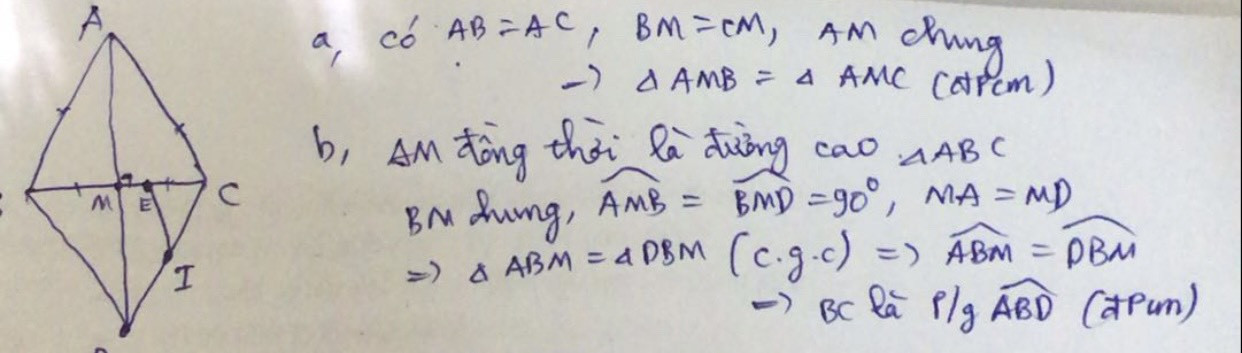 A
M
E
C
I
a, có AB = AC, BM = CM, AM chung
-) Δ AMB = Δ AMC (đpcm)
b, AM đồng thời là đường cao ΔABC
BM chung, \widehat{AMB} = \widehat{BMD} = 90°, MA = MD
=> Δ ABM = Δ DBM (c.g.c) => \widehat{ABM} = \widehat{DBM}
-) BC là p/g \widehat{ABD} (đpcm)